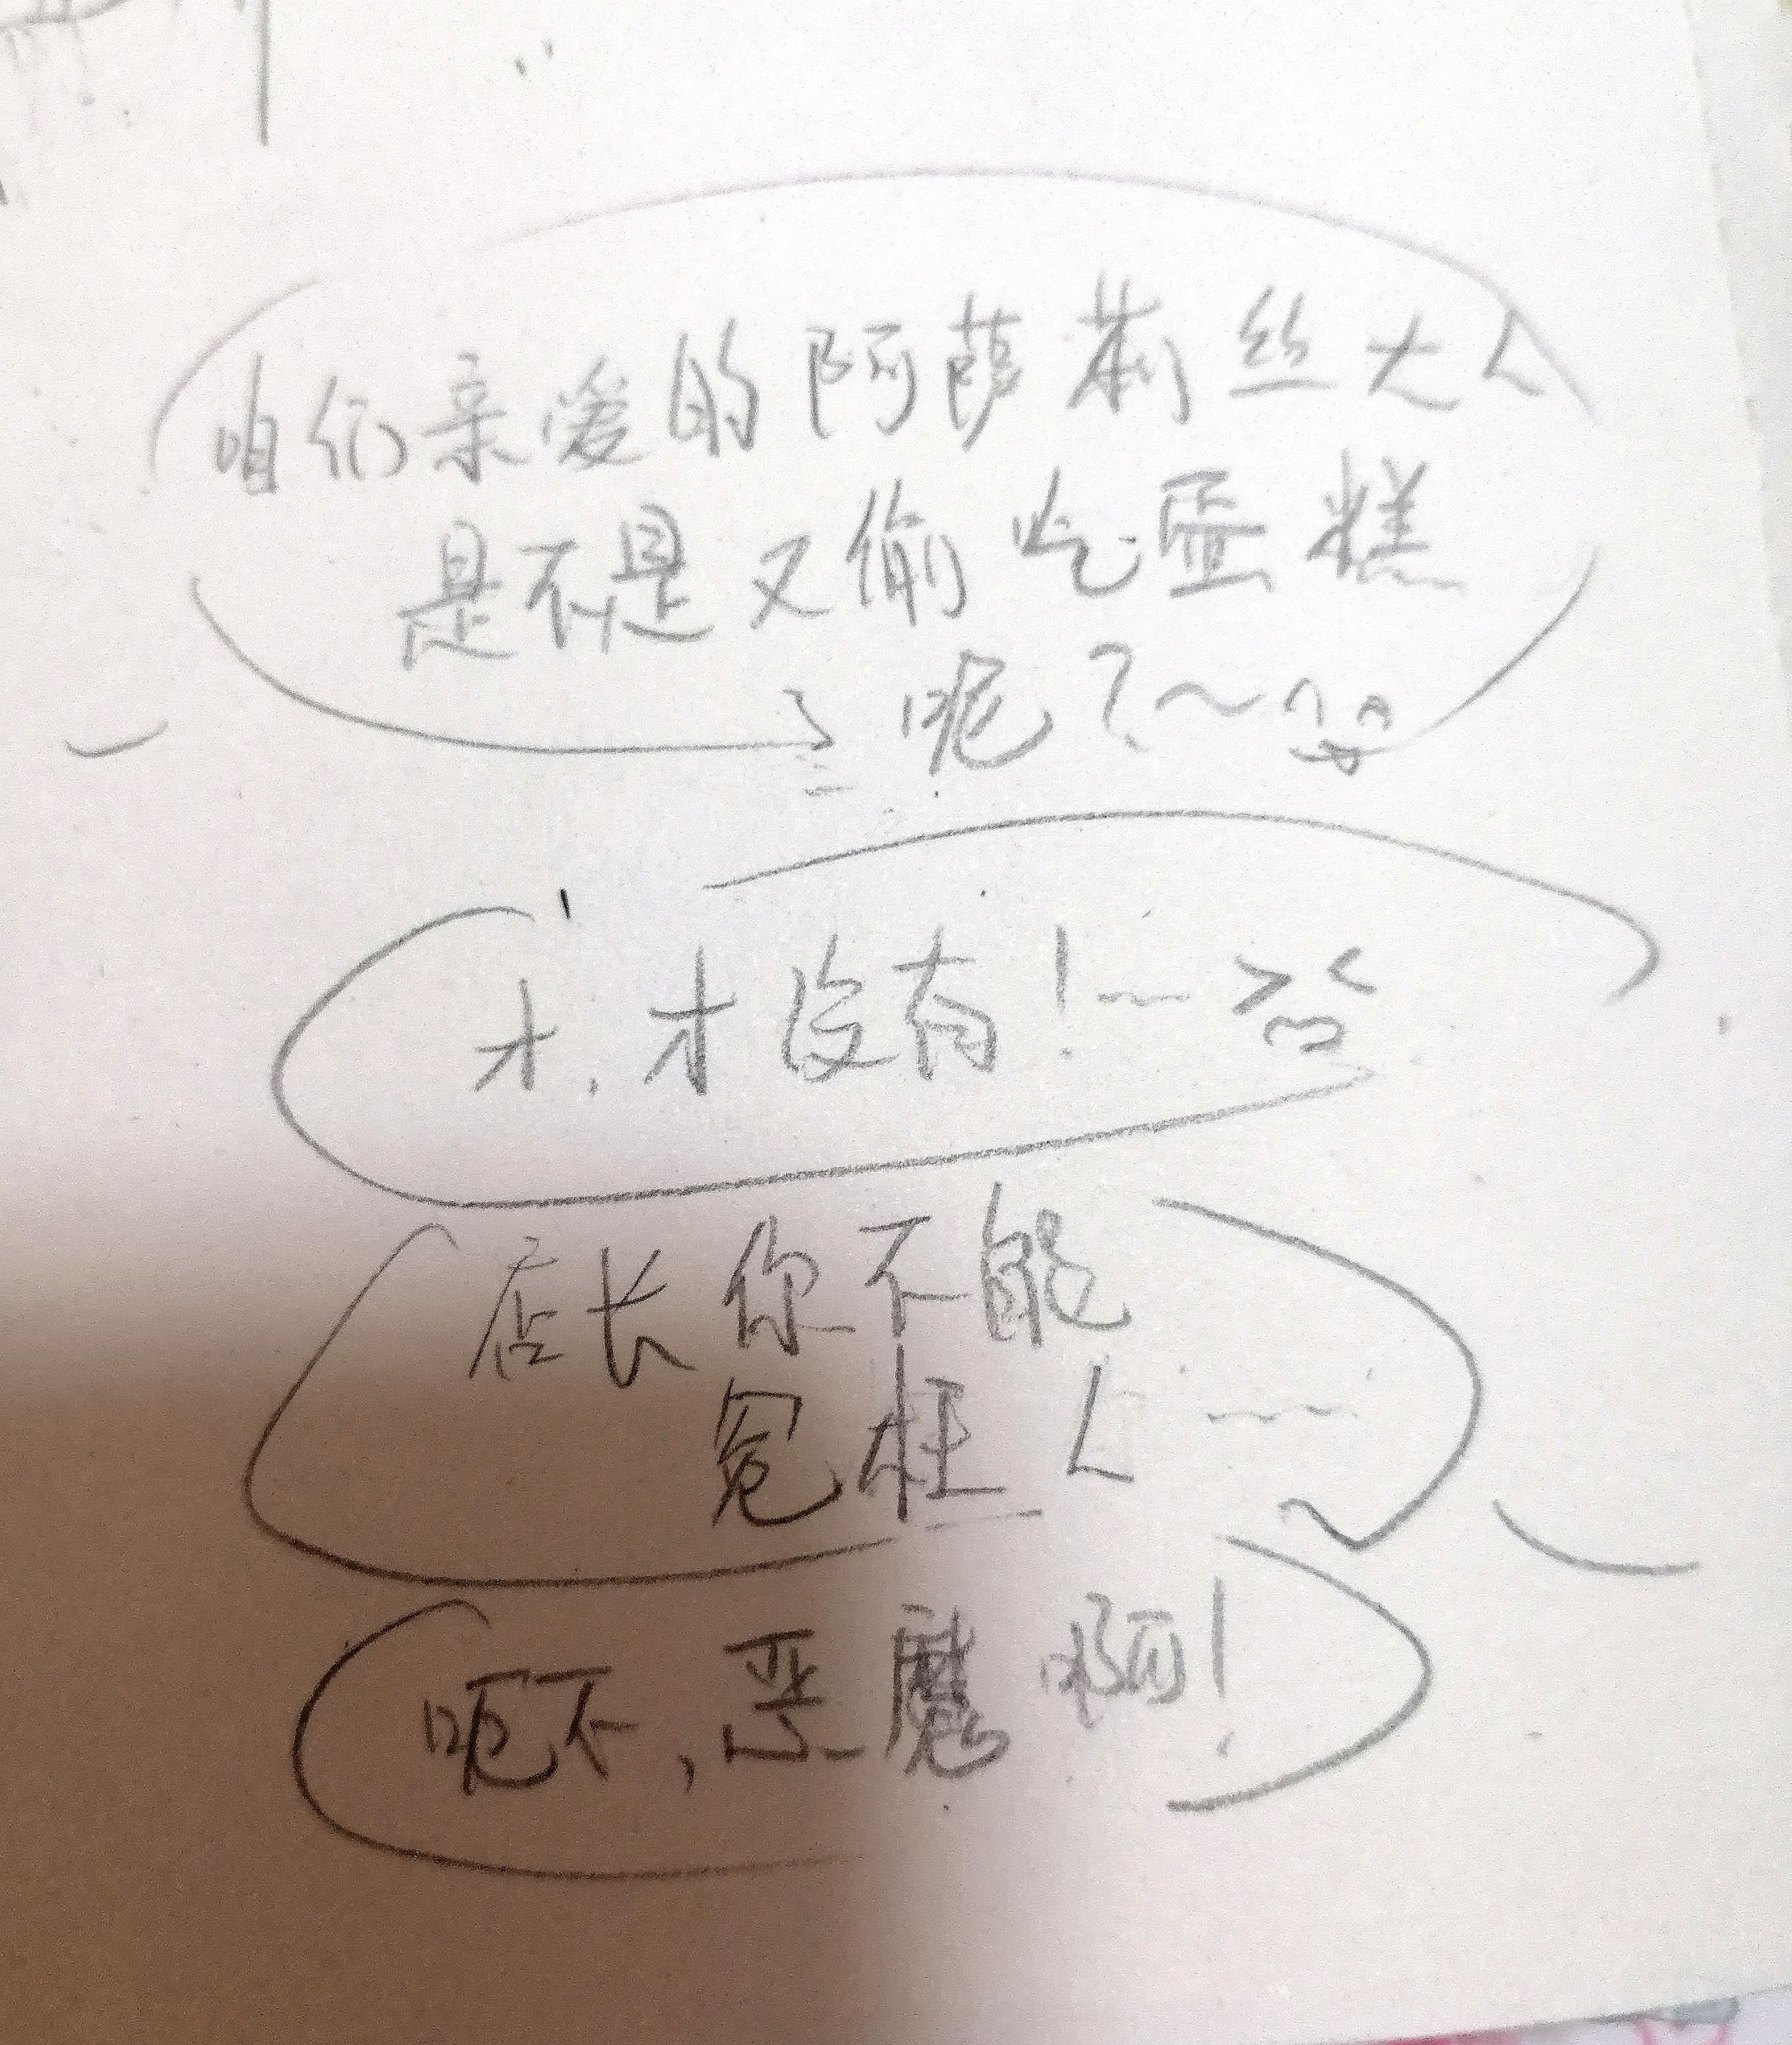 咱们亲爱的阿萨莉丝大人
是不是又偷吃蛋糕
了呢?~
才.才没有!~
店长你不能
冤枉人……
呃不,恶魔啊!